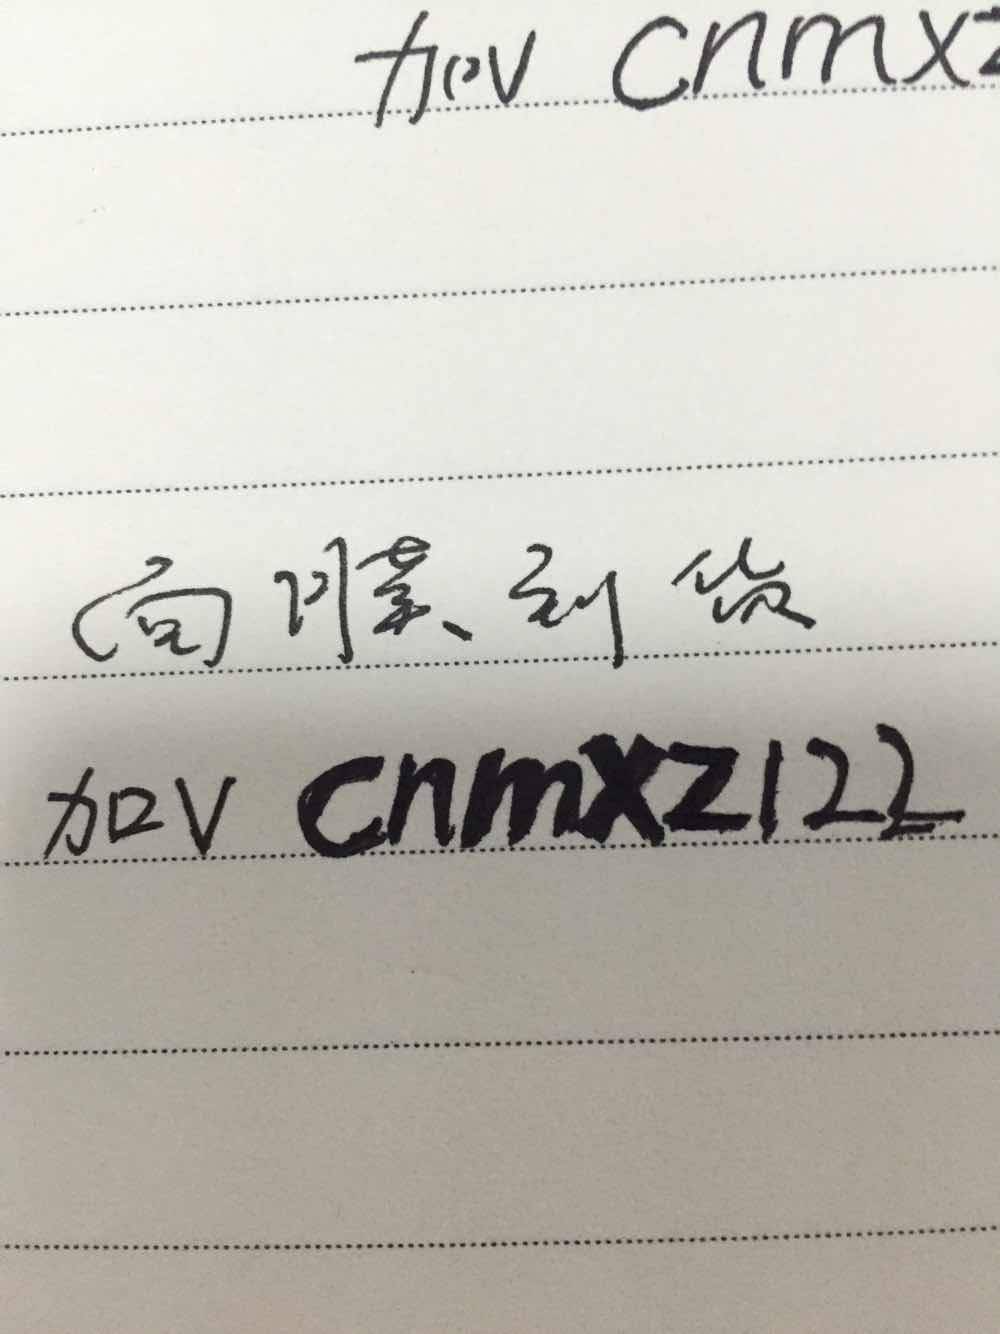 加V cnmxz
面膜到货
加V cnmxz122